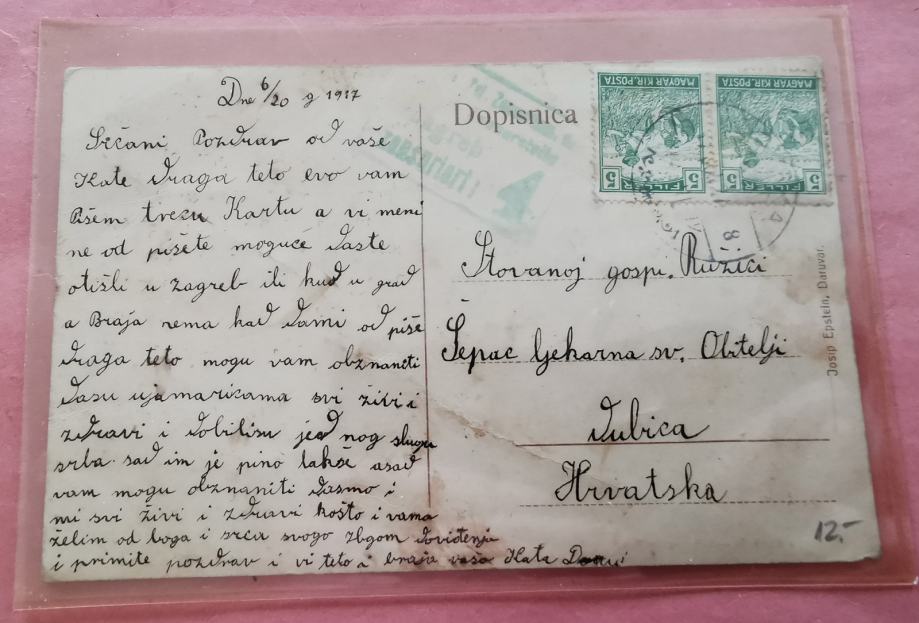 Dne 6/20 g 1917
Srčani Pozdrav od vaše
Kate draga teto evo vam
Pišem treću Kartu a vi meni
ne od pišete moguće daste
otišli u zagreb ili kud u grad
a Braja nema kad dami od piše
draga teto mogu vam obznaniti
dasu ujamarikama svi živi i
zdravi i dobilisu jed nog slugu
srba sad im je puno lakše asad
vam mogu obznaniti dasmo i
mi svi živi i zdravi košto i vama
želim od boga i srca svogo zbgom dovidenja
i primite pozdrav i vi teto i braja vaša Kata
Dopisnica
MAGYAR KIR. POSTA
5 FILLER 5
MAGYAR KIR. POSTA
5 FILLER 5
Štovanoj gospr. Ružici
Šepac ljekarna sv. Obitelji
Dubica
Hrvatska
Josip Epstein, Daruvar.
12.-